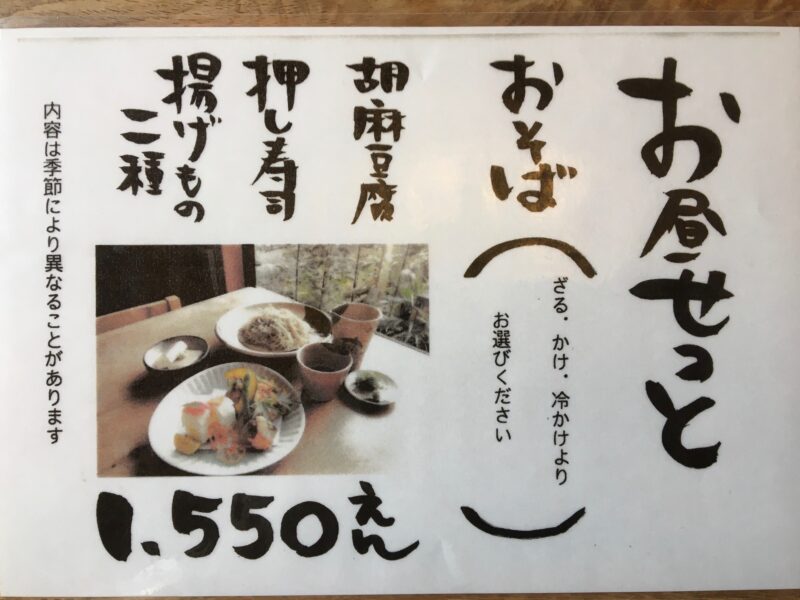 お昼せっと
おそば
ざる・かけ・冷かけより
お選びください
胡麻豆腐
押し寿司
揚げもの
二種
内容は季節により異なることがあります
1,550えん